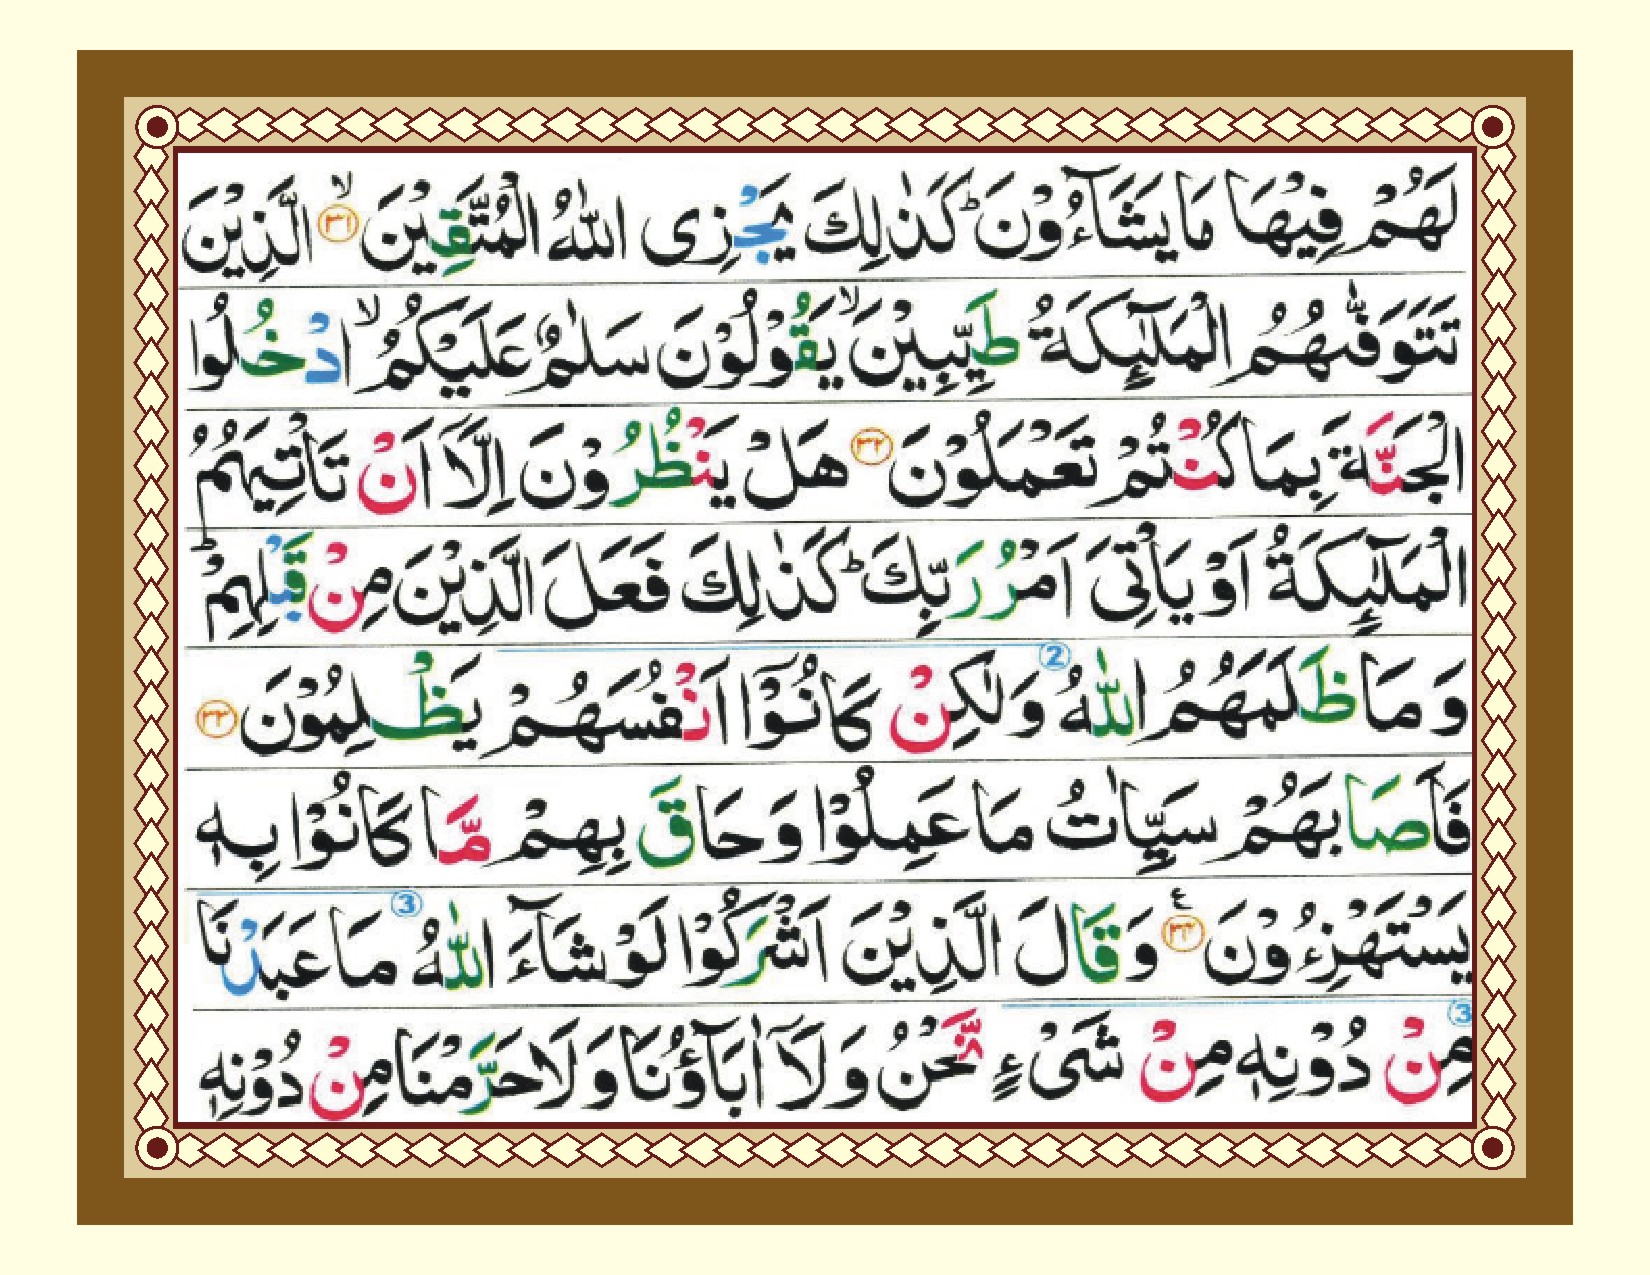 لَهُمْ فِيْهَا مَا يَشَآءُوْنَ ؕ كَذٰلِكَ يَجْزِى اللّٰهُ الْمُتَّقِيْنَ ۙ﴿۳۱﴾ الَّذِيْنَ
تَتَوَفّٰىهُمُ الْمَلٰٓئِكَةُ طَيِّبِيْنَ ۙ يَقُوْلُوْنَ سَلٰمٌ عَلَيْكُمُ ۙ ادْخُلُوا
الْجَنَّةَ بِمَا كُنْتُمْ تَعْمَلُوْنَ ﴿۳۲﴾ هَلْ يَنْظُرُوْنَ اِلَّاۤ اَنْ تَاْتِيَهُمُ
الْمَلٰٓئِكَةُ اَوْ يَاْتِىَ اَمْرُ رَبِّكَ ؕ كَذٰلِكَ فَعَلَ الَّذِيْنَ مِنْ قَبْلِهِمْ ؕ
وَمَا ظَلَمَهُمُ اللّٰهُ ② وَلٰكِنْ كَانُوْۤا اَنْفُسَهُمْ يَظْلِمُوْنَ ﴿۳۳﴾
فَاَصَابَهُمْ سَيِّاٰتُ مَا عَمِلُوْا وَحَاقَ بِهِمْ مَّا كَانُوْا بِهٖ
يَسْتَهْزِءُوْنَ ﴿۳۴﴾ ع وَقَالَ الَّذِيْنَ اَشْرَكُوْا لَوْ شَآءَ اللّٰهُ ③ مَا عَبَدْنَا
③ مِنْ دُوْنِهٖ مِنْ شَىْءٍ نَّحْنُ وَلَاۤ اٰبَآؤُنَا وَلَا حَرَّمْنَا مِنْ دُوْنِهٖ